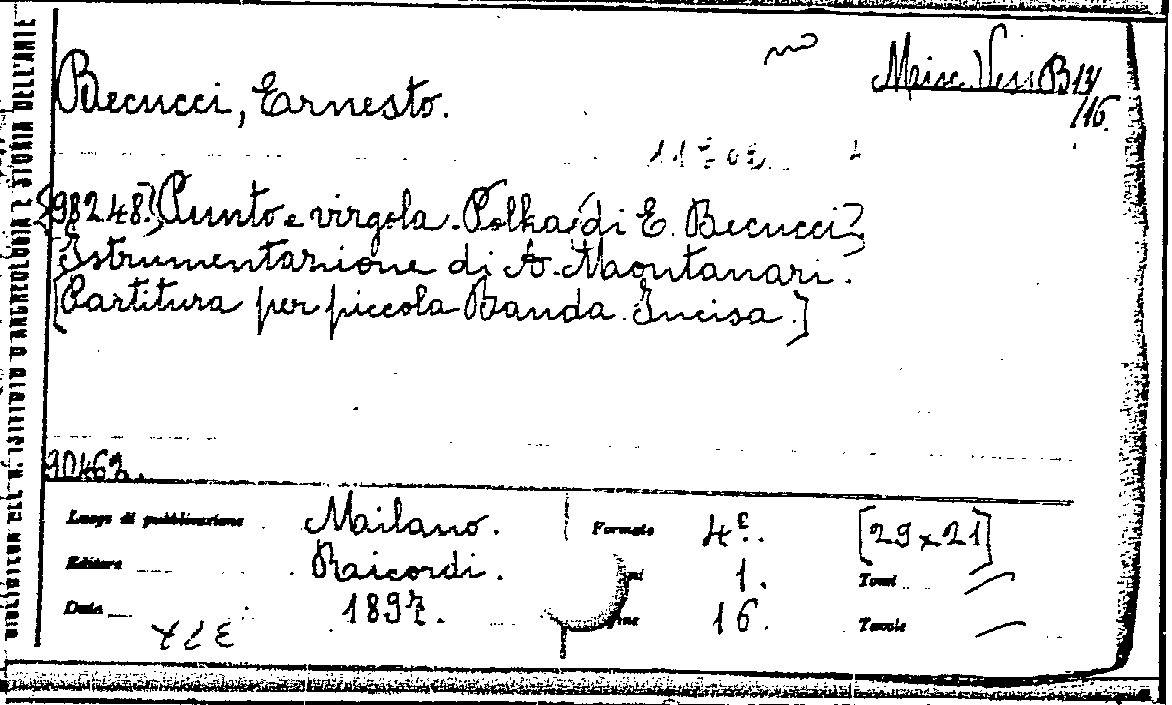 Misc. Vess. B 14
/16.
Becucci, Ernesto.
{98248.} Punto e virgola. Polka [di E. Becucci]
Istrumentazione di A. Montanari.
[Partitura per piccola Banda. Incisa.]
90462.
Luogo di pubblicazione Milano. Formato 4º. [29 x 21]
Editore Ricordi. 1. Tomi
Data 1897. 16. Tavole
BIBLIOTECA DEL R. ISTITUTO D'ARCHEOLOGIA E STORIA DELL'ARTE